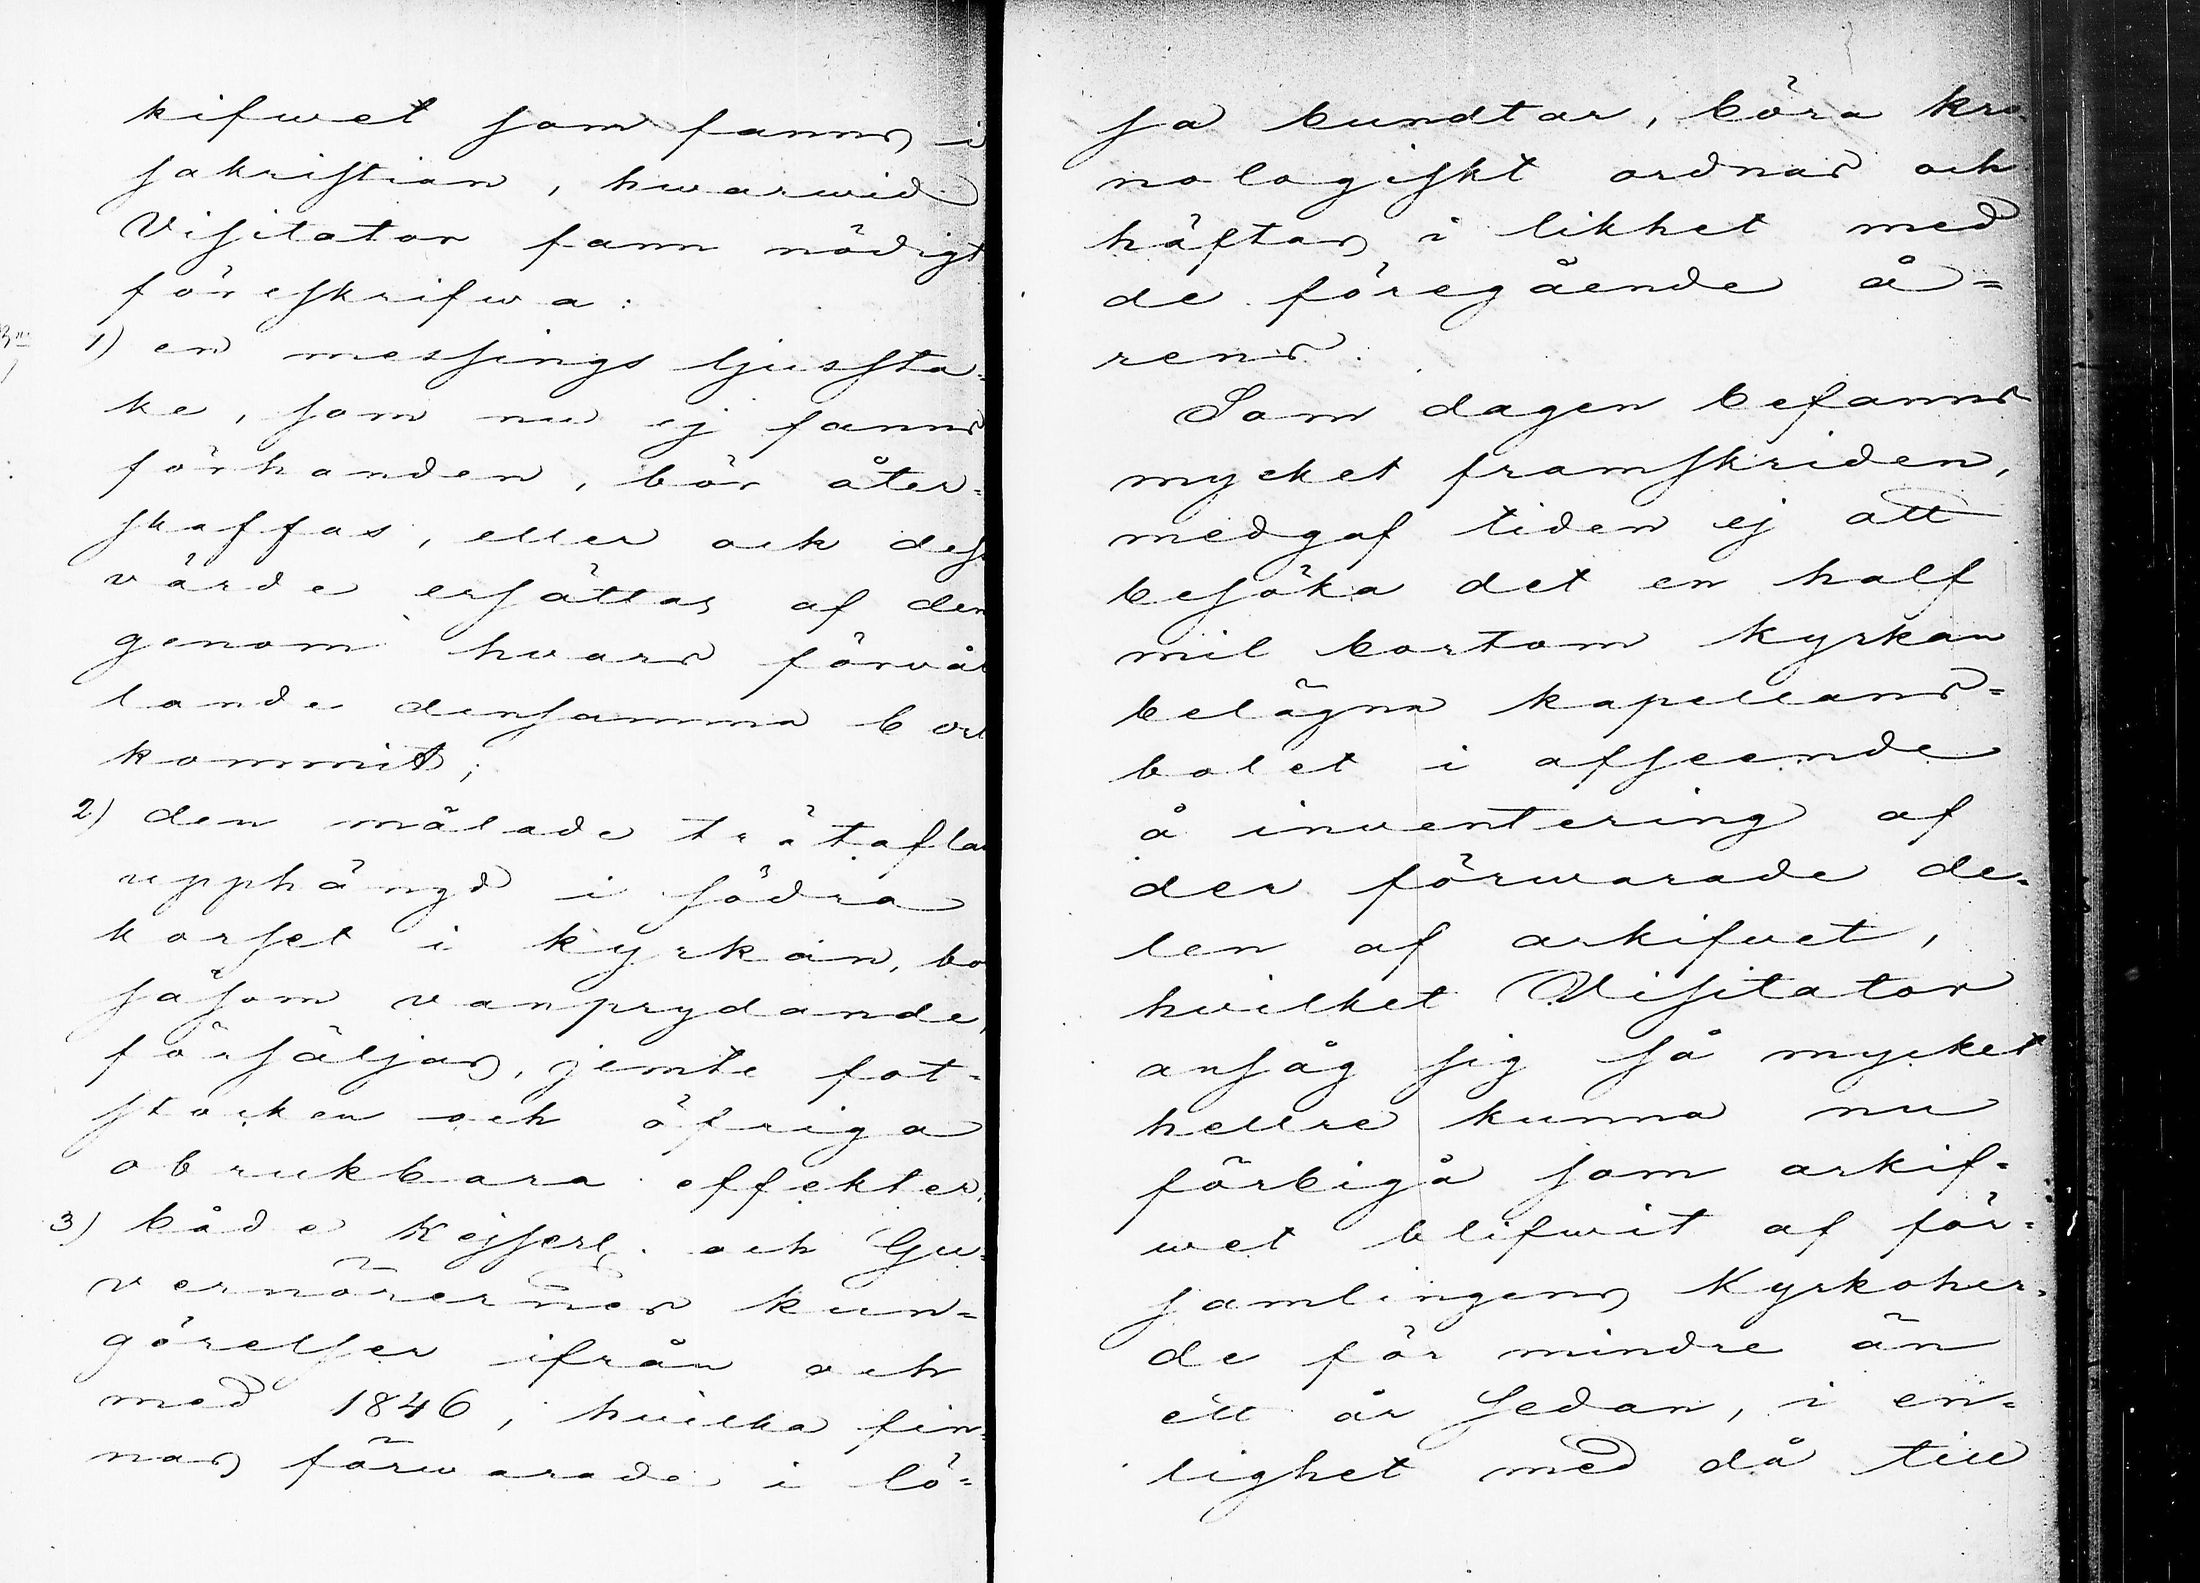 kifwet som fanns i
sakristian, hwarwid
Visitator fann nödigt
föreskrifwa:
1) en messings ljussta-
ke, som nu ej fanns
förhanden, bör åter-
skaffas, eller ock dess
värde ersättas af den
genom hvars förvål
lande densamma bort
kommit;
2) den målade trätaflan
upphängd i södra
korset i kyrkan, bö
såsom vanprydande,
försäljas, jemte fot-
stocken och öfriga
obrukbara effekter.
3) både Kejserl. och Gu-
vernörernes kun-
görelser ifrån och
med 1846, hvilka fin-
nas förwarade i lö-
sa bundtar, böra kro-
nologiskt ordnas och
häftas i likhet med
de föregående å-
rens.
Som dagen befanns
mycket framskriden,
medgaf tiden ej att
besöka det en half
mil bortom kyrkan
belägna kapellans-
bolet i afseende
å inventering af
der förwarade de-
len af arkifvet,
hvilket Visitator
ansåg sig så mycket
hellre kunna nu
förbigå som arkif-
wet blifwit af för-
samlingens Kyrkoher-
de för mindre än
ett år sedan, i en-
lighet med då till